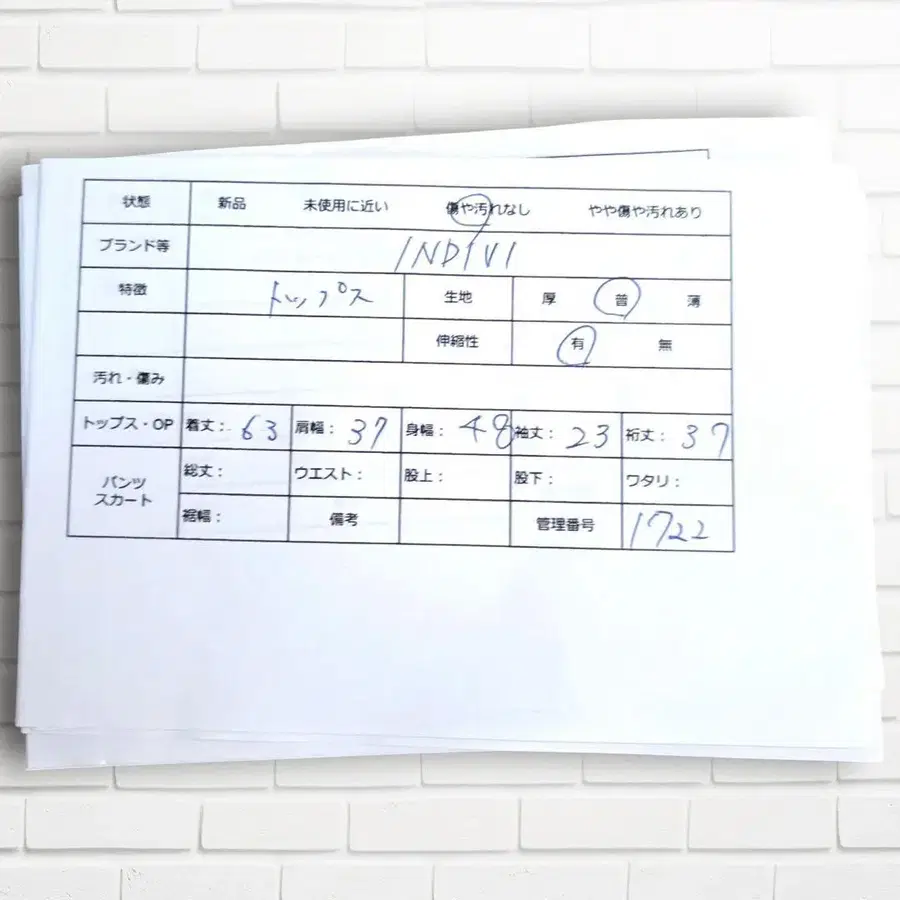 状態 新品 未使用に近い 傷や汚れなし やや傷や汚れあり
ブランド等 INDIVI
特徴 トップス 生地 厚 普 薄
伸縮性 有 無
汚れ・傷み
トップス・OP 着丈: 63 肩幅: 37 身幅: 48 袖丈: 23 裄丈: 37
パンツ スカート 総丈: ウエスト: 股上: 股下: ワタリ:
裾幅: 備考 管理番号 1722